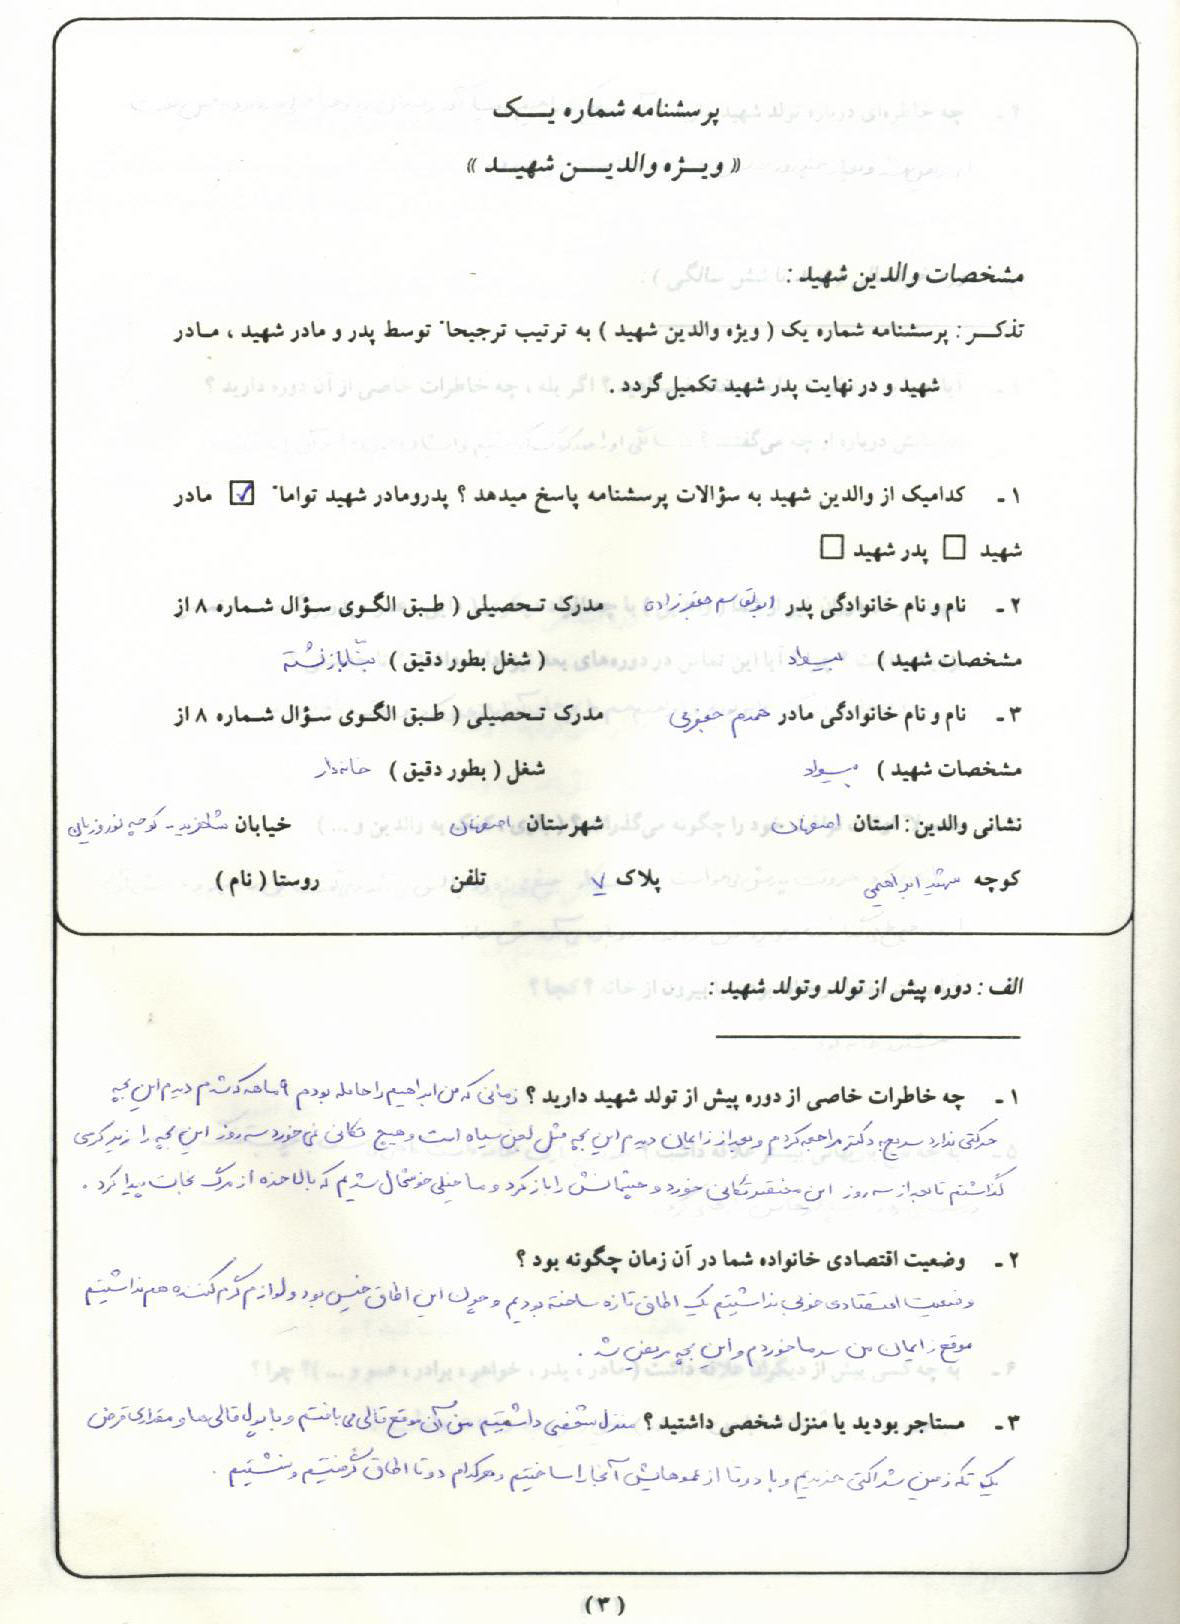 پرسشنامه شماره یک
« ویژه والدین شهید »
مشخصات والدین شهید :
تذکر : پرسشنامه شماره یک ( ویژه والدین شهید ) به ترتیب ترجیحاً توسط پدر و مادر شهید ، مادر
شهید و در نهایت پدر شهید تکمیل گردد .
۱ - کدامیک از والدین شهید به سؤالات پرسشنامه پاسخ میدهد ؟ پدرومادر شهید تواماً ☑ مادر
شهید ☐ پدر شهید ☐
۲ - نام و نام خانوادگی پدر ابوالقاسم جعفرزاده مدرک تحصیلی ( طبق الگوی سؤال شماره ۸ از
مشخصات شهید ) بیسواد ( شغل بطور دقیق ) بنا بازنشسته
۳ - نام و نام خانوادگی مادر همدم جعفری مدرک تحصیلی ( طبق الگوی سؤال شماره ۸ از
مشخصات شهید ) بیسواد شغل ( بطور دقیق ) خانه‌دار
نشانی والدین : استان اصفهان شهرستان اصفهان خیابان کوچه نوروزیان
کوچه شهید ابراهیمی پلاک ۷ تلفن روستا ( نام )
الف : دوره پیش از تولد وتولد شهید :
۱ - چه خاطرات خاصی از دوره پیش از تولد شهید دارید ؟ زمانی که من ابراهیم را حامله بودم ۹ ماهه که شدم دیدم این بچه
حرکتی ندارد سریع به دکتر مراجعه کردم و بعد از زایمان دیدم این بچه مثل لجن سیاه است و هیچ تکانی نمی‌خورد سه روز این بچه را زیر کرسی
گذاشتم تا بعد از سه روز این تکانی خورد و چشمانش را باز کرد و ما خیلی خوشحال شدیم که بالاخره از مرگ نجات پیدا کرد .
۲ - وضعیت اقتصادی خانواده شما در آن زمان چگونه بود ؟
وضعیت اقتصادی خوبی نداشتیم یک اطاق تازه ساخته بودیم و چون این اطاق خیس بود و لوازم گرم کننده هم نداشتیم
موقع زایمان من سرما خوردم و این بچه مریض شد .
۳ - مستاجر بودید یا منزل شخصی داشتید ؟ منزل شخصی داشتیم من آن موقع قالی می بافتم و با پول قالی ها و مقداری قرض
یک تکه زمین شراکتی خریدیم و با دو تا از عموهایش آنجا را ساختیم و هر کدام دو تا اطاق گرفتیم و نشستیم .
( ۳ )